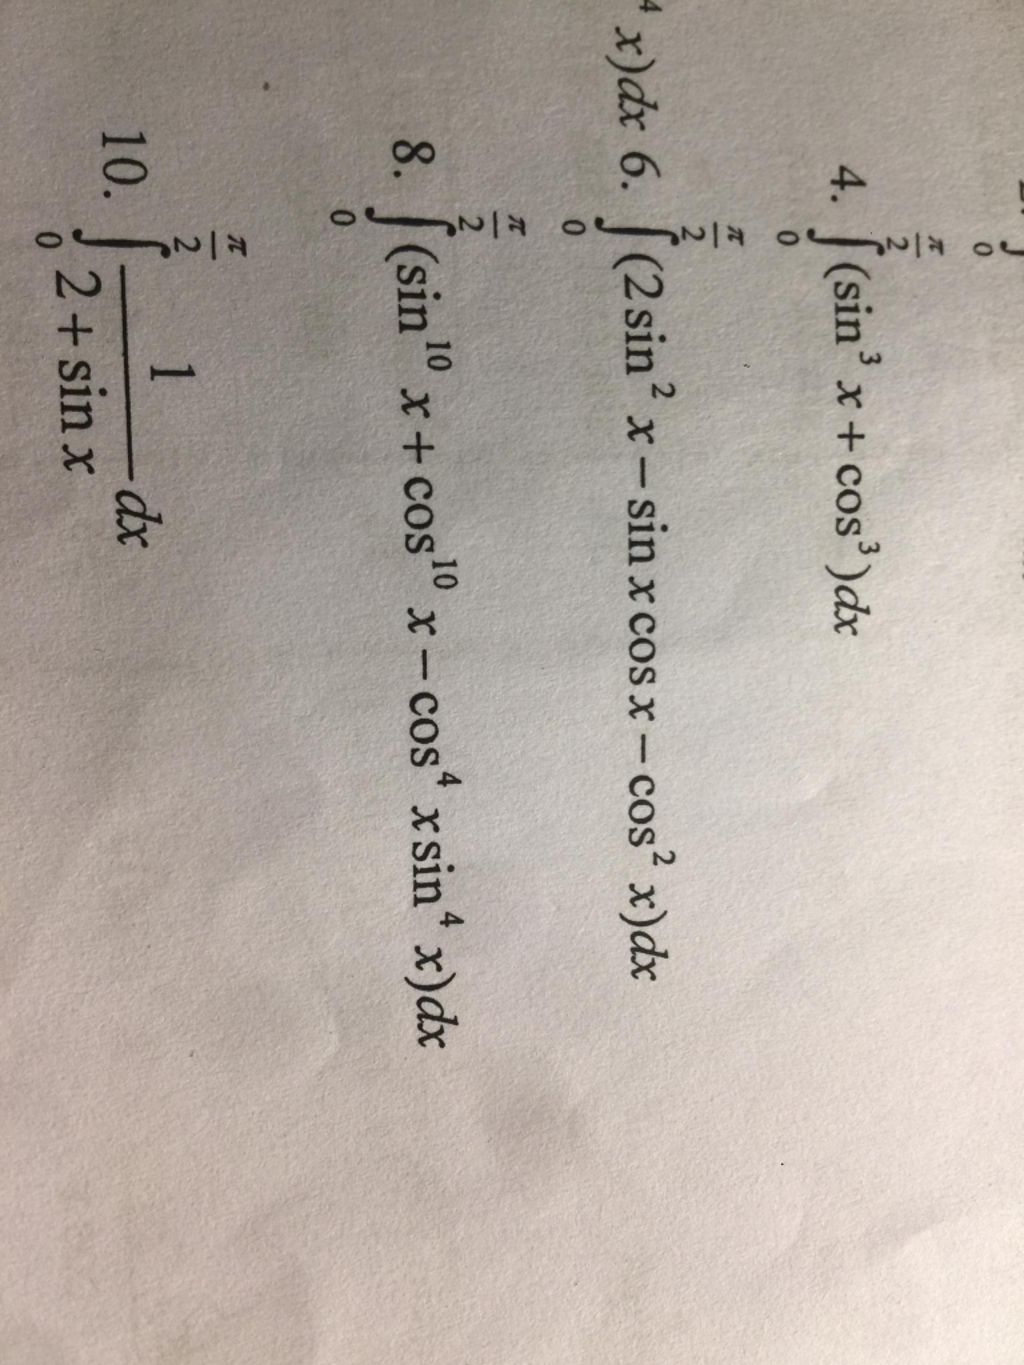 4. ∫_0^{π/2} (sin³ x + cos³)dx
⁴ x)dx 6. ∫_0^{π/2} (2 sin² x − sin x cos x − cos² x)dx
8. ∫_0^{π/2} (sin¹⁰ x + cos¹⁰ x − cos⁴ x sin⁴ x)dx
10. ∫_0^{π/2} 1/(2 + sin x) dx